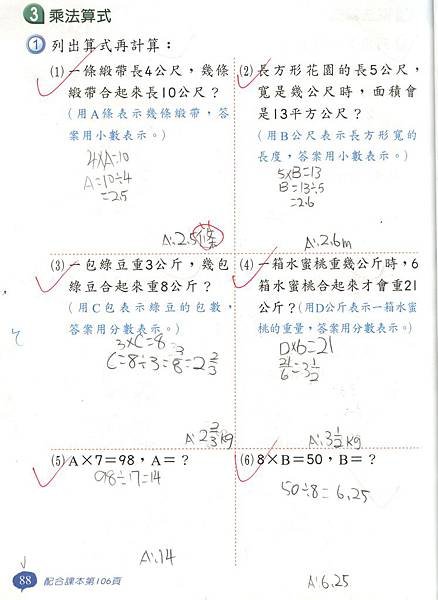 3 乘法算式
1 列出算式再計算：
(1)一條緞帶長4公尺，幾條
緞帶合起來長10公尺？
(用A條表示幾條緞帶，答
案用小數表示。)
4×A=10
A=10÷4
=2.5
A:2.5條
(2)長方形花園的長5公尺，
寬是幾公尺時，面積會
是13平方公尺？
(用B公尺表示長方形寬的
長度，答案用小數表示。)
5×B=13
B=13÷5
=2.6
A:2.6m
(3)一包綠豆重3公斤，幾包
綠豆合起來重8公斤？
(用C包表示綠豆的包數，
答案用分數表示。)
3×C=8
C=8÷3=8/3=2 2/3
A:2 2/3 kg
(4)一箱水蜜桃重幾公斤時，6
箱水蜜桃合起來才會重21
公斤？(用D公斤表示一箱水蜜
桃的重量，答案用分數表示。)
D×6=21
21/6=3 1/2
A:3 1/2 kg
(5)A×7=98，A=？
98÷7=14
A:14
(6)8×B=50，B=？
50÷8=6.25
A:6.25
88 配合課本第106頁